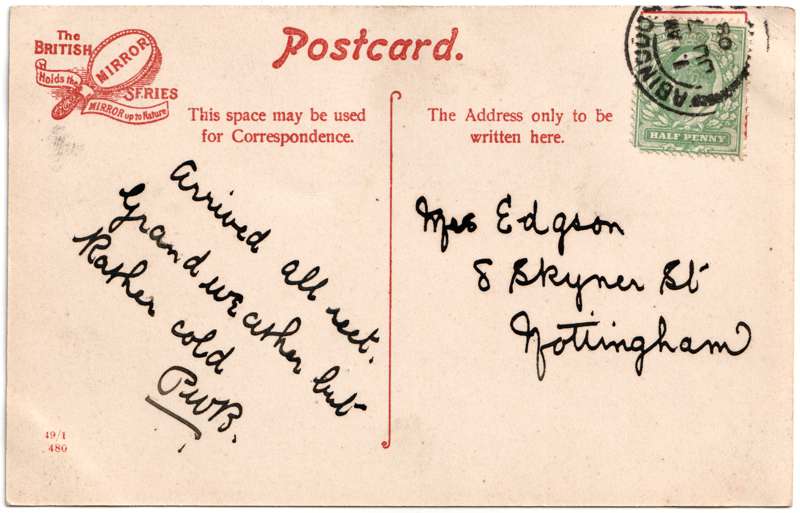 The
BRITISH
MIRROR
Holds the
SERIES
MIRROR up to Nature
Postcard.
This space may be used
for Correspondence.
The Address only to be
written here.
ABINGDON
AM
JY
08
HALF PENNY
Arrived all rect.
Grand weather but
Rather cold
PWB.
Mrs Edgson
8 Skyner St
Nottingham
49/1
480